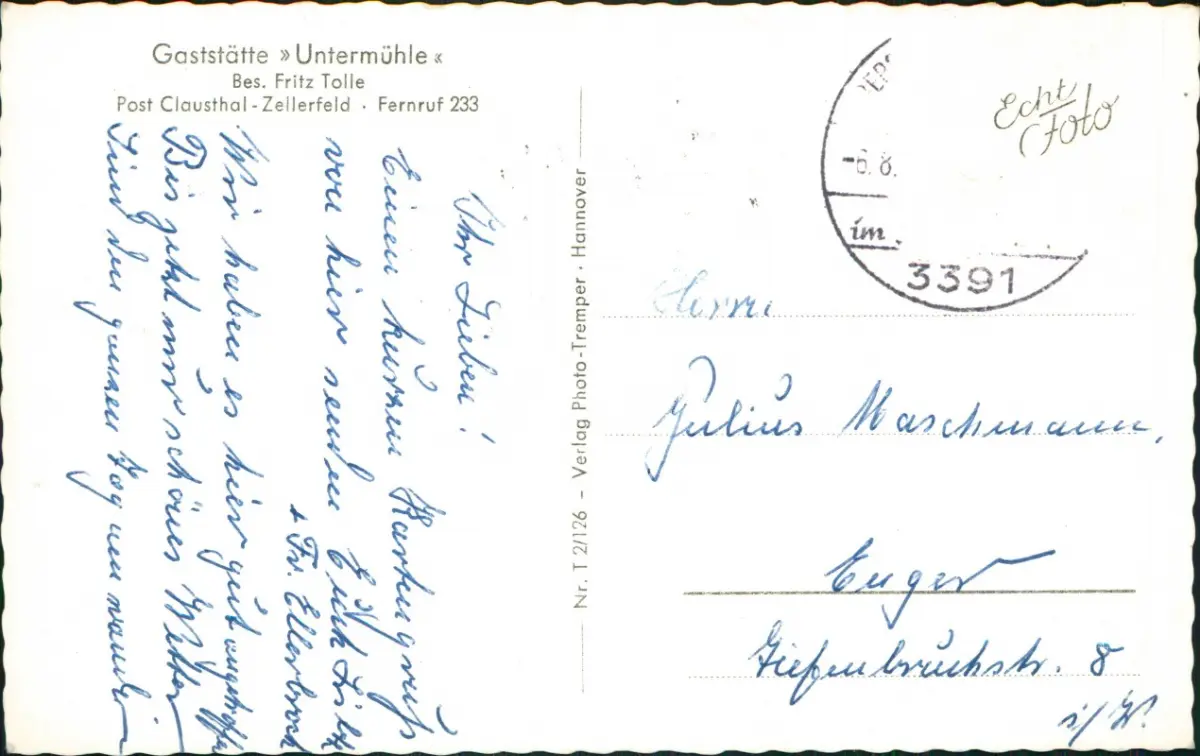 Gaststätte »Untermühle«
Bes. Fritz Tolle
Post Clausthal-Zellerfeld · Fernruf 233
Ihr Lieben!
Einen kurzen Kartengruß
von hier senden Euch
+ Fr. Ellerbrock
Wir haben es hier gut angetroffen
Bis jetzt nur schönes Wetter
Sind den ganzen Tag am wandern
Nr. T 2/126 – Verlag Photo-Tremper · Hannover
Echt
Foto
-6.8.
im
3391
Herrn
Julius Maschmann,
Enger
Tiefenbruchstr. 8
i/W.